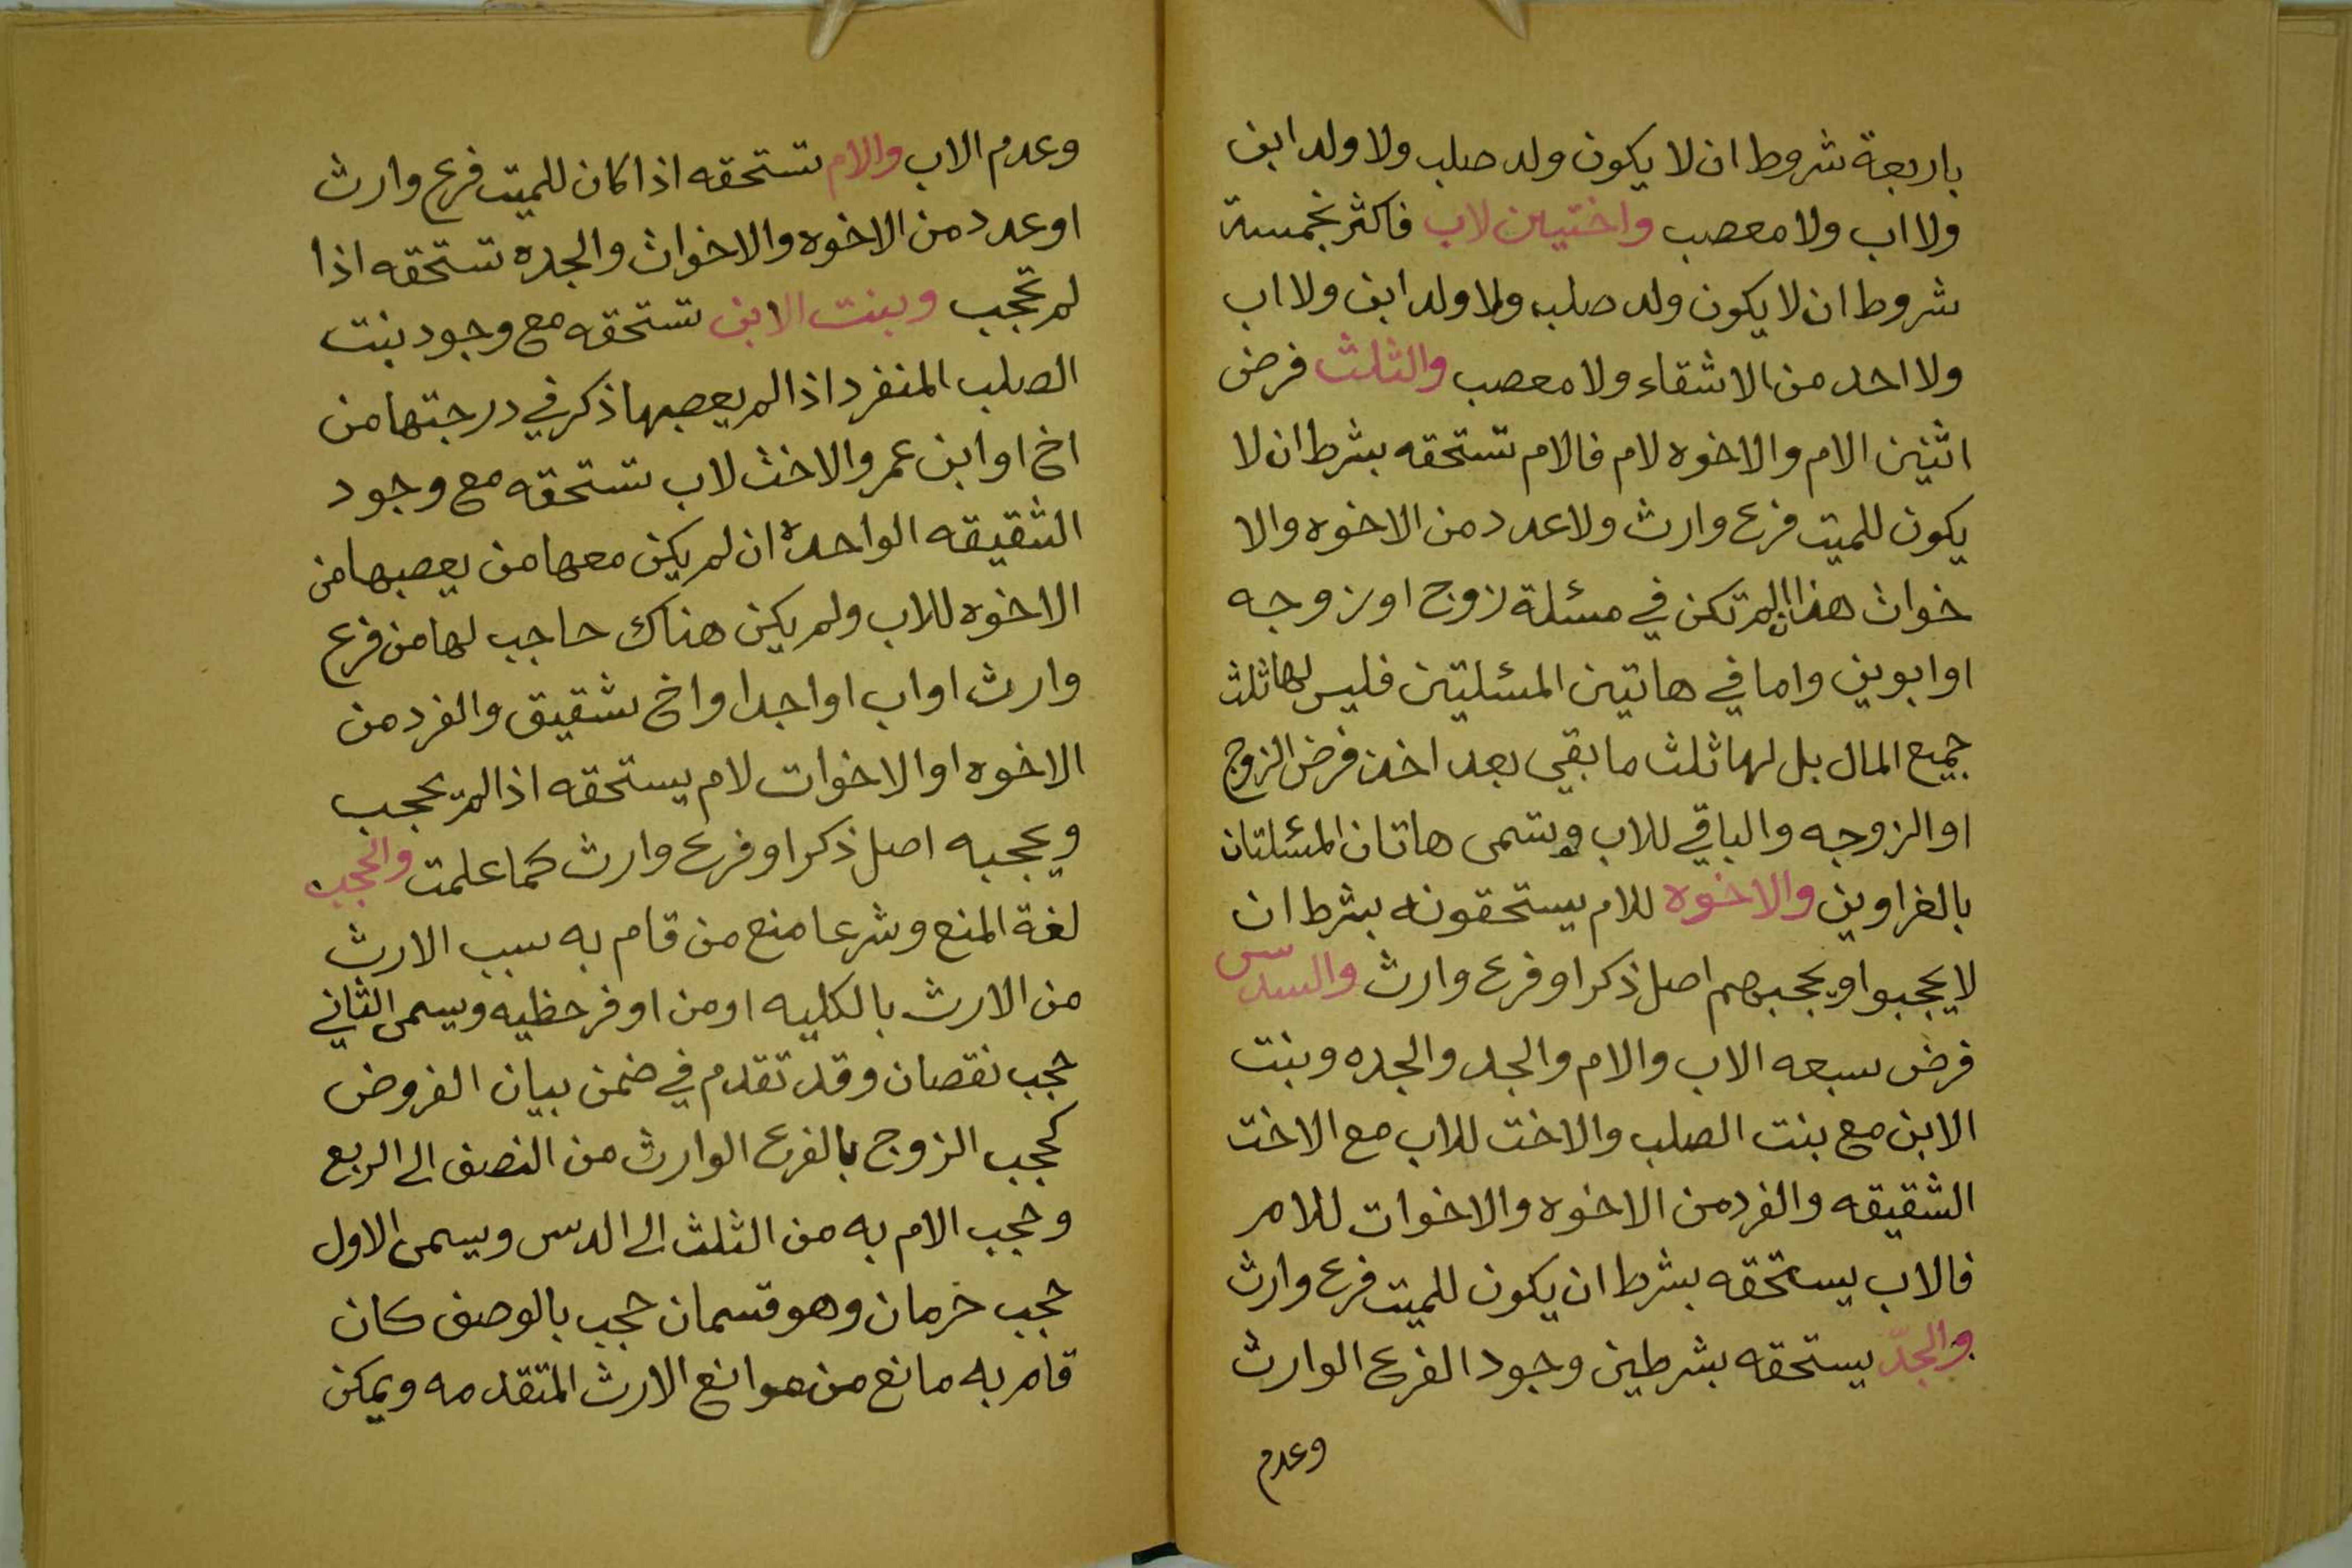 باربعة شروط ان لا يكون ولد صلب ولا ولد ابن
ولا اب ولا معصب واختين لاب فاكثر بخمسة
شروط ان لا يكون ولد صلب ولا ولد ابن ولا اب
ولا احد من الاشقاء ولا معصب والثلث فرض
اثنين الام والاخوه لام فالام تستحقه بشرط ان لا
يكون للميت فرع وارث ولا عدد من الاخوه والا
خوات هذا ان لم تكن في مسئلة زوج او زوجه
او ابوين واما في هاتين المسئلتين فليس لها ثلث
جميع المال بل لها ثلث ما بقي بعد اخذ فرض الزوج
او الزوجه والباقي للاب وتسمى هاتان المسئلتان
بالغراوين والاخوه للام يستحقونه بشرط ان
لا يحجبوا ويحجبهم اصل ذكر او فرع وارث والسدس
فرض سبعه الاب والام والجد والجده وبنت
الابن مع بنت الصلب والاخت للاب مع الاخت
الشقيقه والفرد من الاخوه والاخوات للام
فالاب يستحقه بشرط ان يكون للميت فرع وارث
والجدّ يستحقه بشرطين وجود الفرع الوارث
وعدم
وعدم الاب والام تستحقه اذا كان للميت فرع وارث
او عدد من الاخوه والاخوات والجده تستحقه اذا
لم تحجب وبنت الابن تستحقه مع وجود بنت
الصلب المنفرد اذا لم يعصبها ذكر في درجتها من
اخ او ابن عم والاخت لاب تستحقه مع وجود
الشقيقه الواحدة ان لم يكن معها من يعصبها من
الاخوه للاب ولم يكن هناك حاجب لها من فرع
وارث او اب او اجدا واخ شقيق والفرد من
الاخوه او الاخوات لام يستحقه اذا لم يحجب
ويحجبه اصل ذكر او فرع وارث كما علمت والحجب
لغة المنع وشرعا منع من قام به سبب الارث
من الارث بالكليه او من اوفر حظيه ويسمى الثاني
حجب نقصان وقد تقدم في ضمن بيان الفروض
كحجب الزوج بالفرع الوارث من النصف الى الربع
وحجب الام به من الثلث الى الدس ويسمى الاول
حجب خرمان وهو قسمان حجب بالوصف كان
قام به مانع من موانع الارث المتقدمه ويمكن